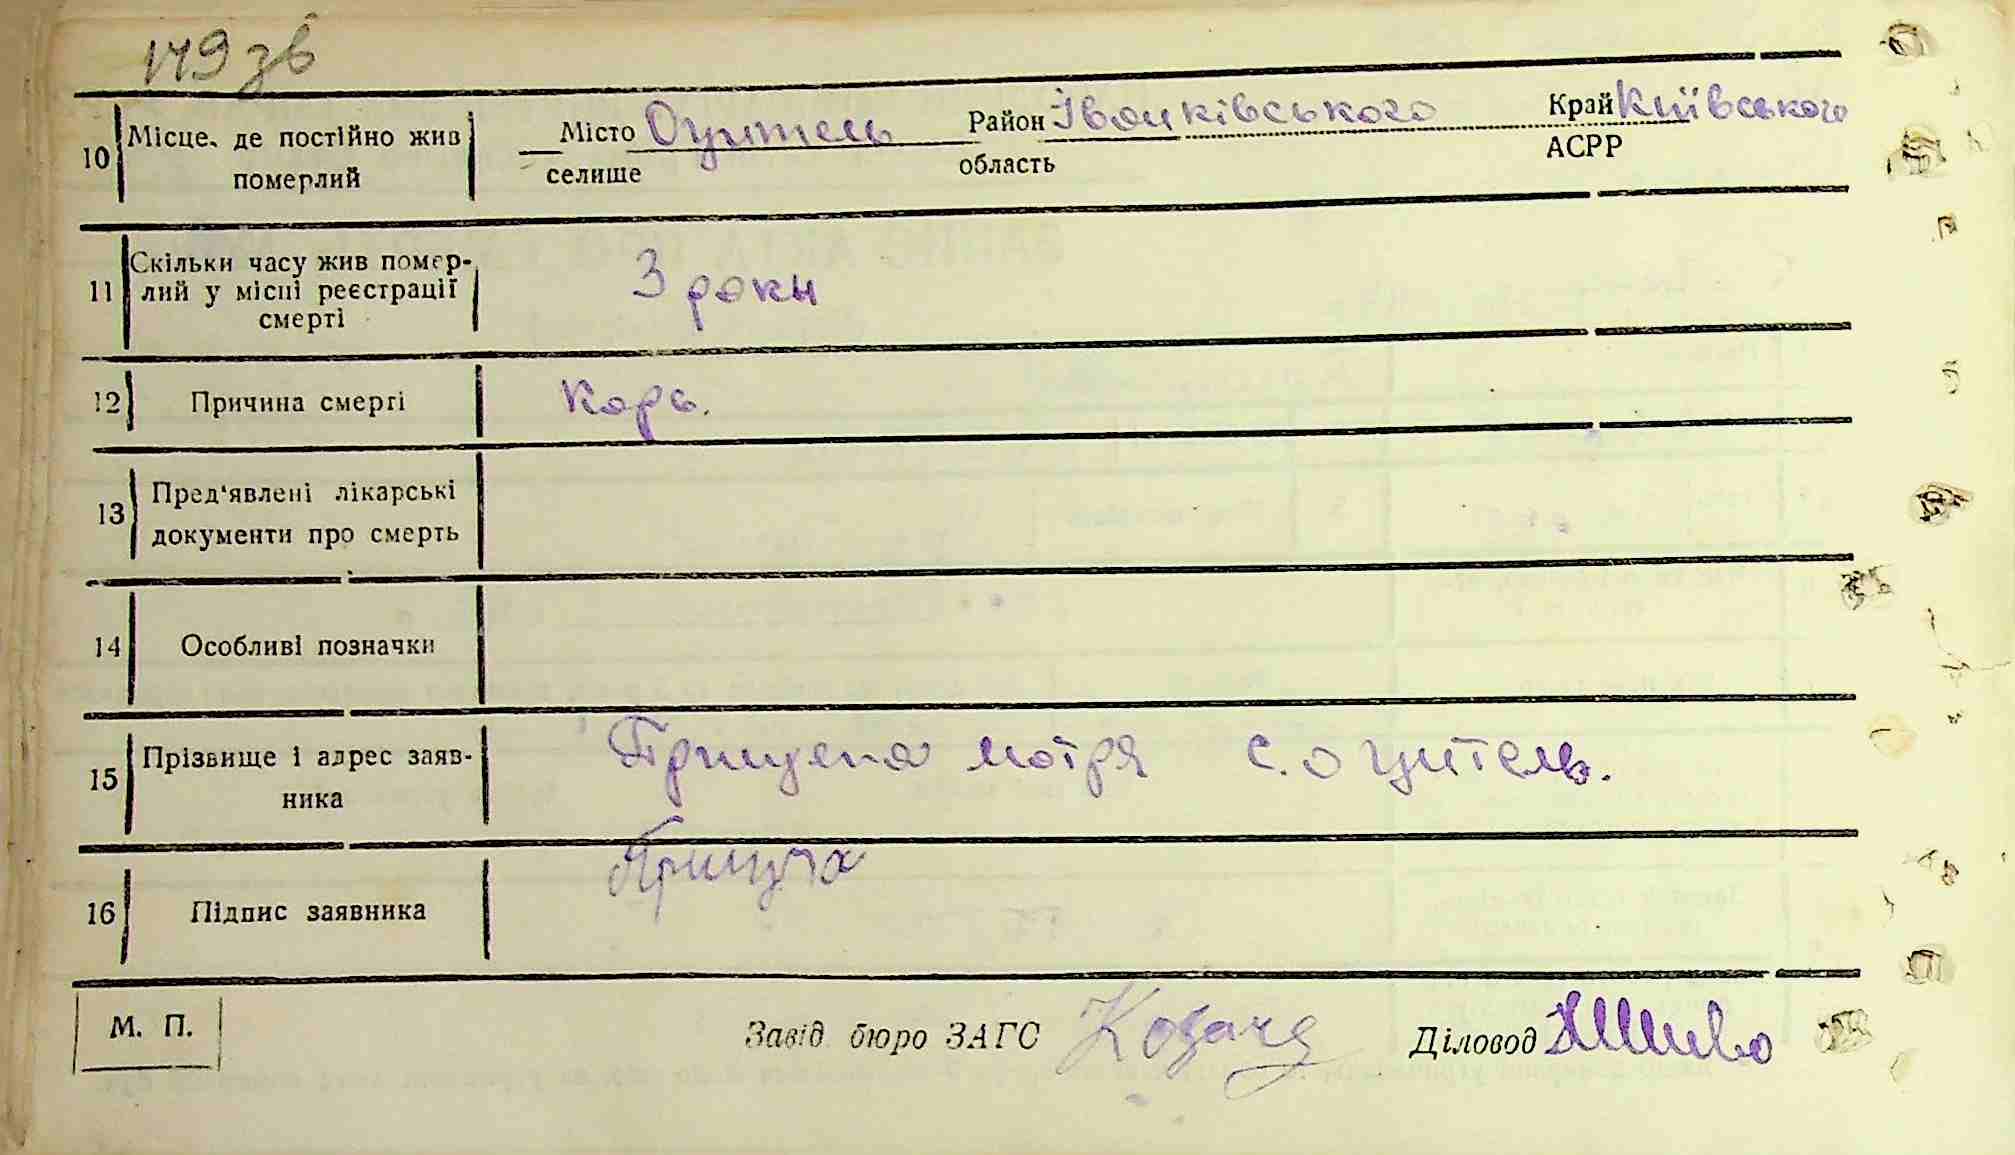 179 зв
10 Місце, де постійно жив Місто Оцитель Район Іванківського Край Київського
померлий селище область АСРР
Скільки часу жив помер-
11 лий у місці реєстрації 3 роки
смерті
12 Причина смерті Корь.
13 Пред'явлені лікарські
документи про смерть
14 Особливі позначки
15 Прізвище і адрес заяв- Прищепа Мотря с. Оцитель.
ника
16 Підпис заявника
М. П. Завід бюро ЗАГС Діловод